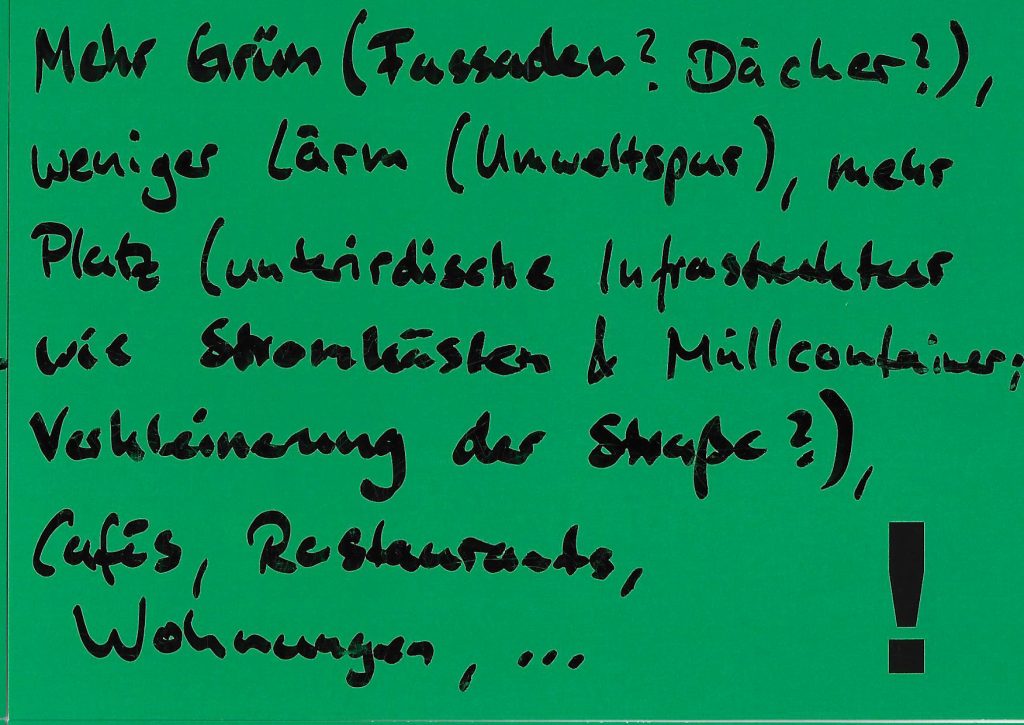 Mehr Grün (Fassaden? Dächer?),
weniger Lärm (Umweltspur), mehr
Platz (unterirdische Infrastruktur
wie Stromkästen & Müllcontainer;
Verkleinerung der Straße?),
Cafés, Restaurants,
Wohnungen, ...
!